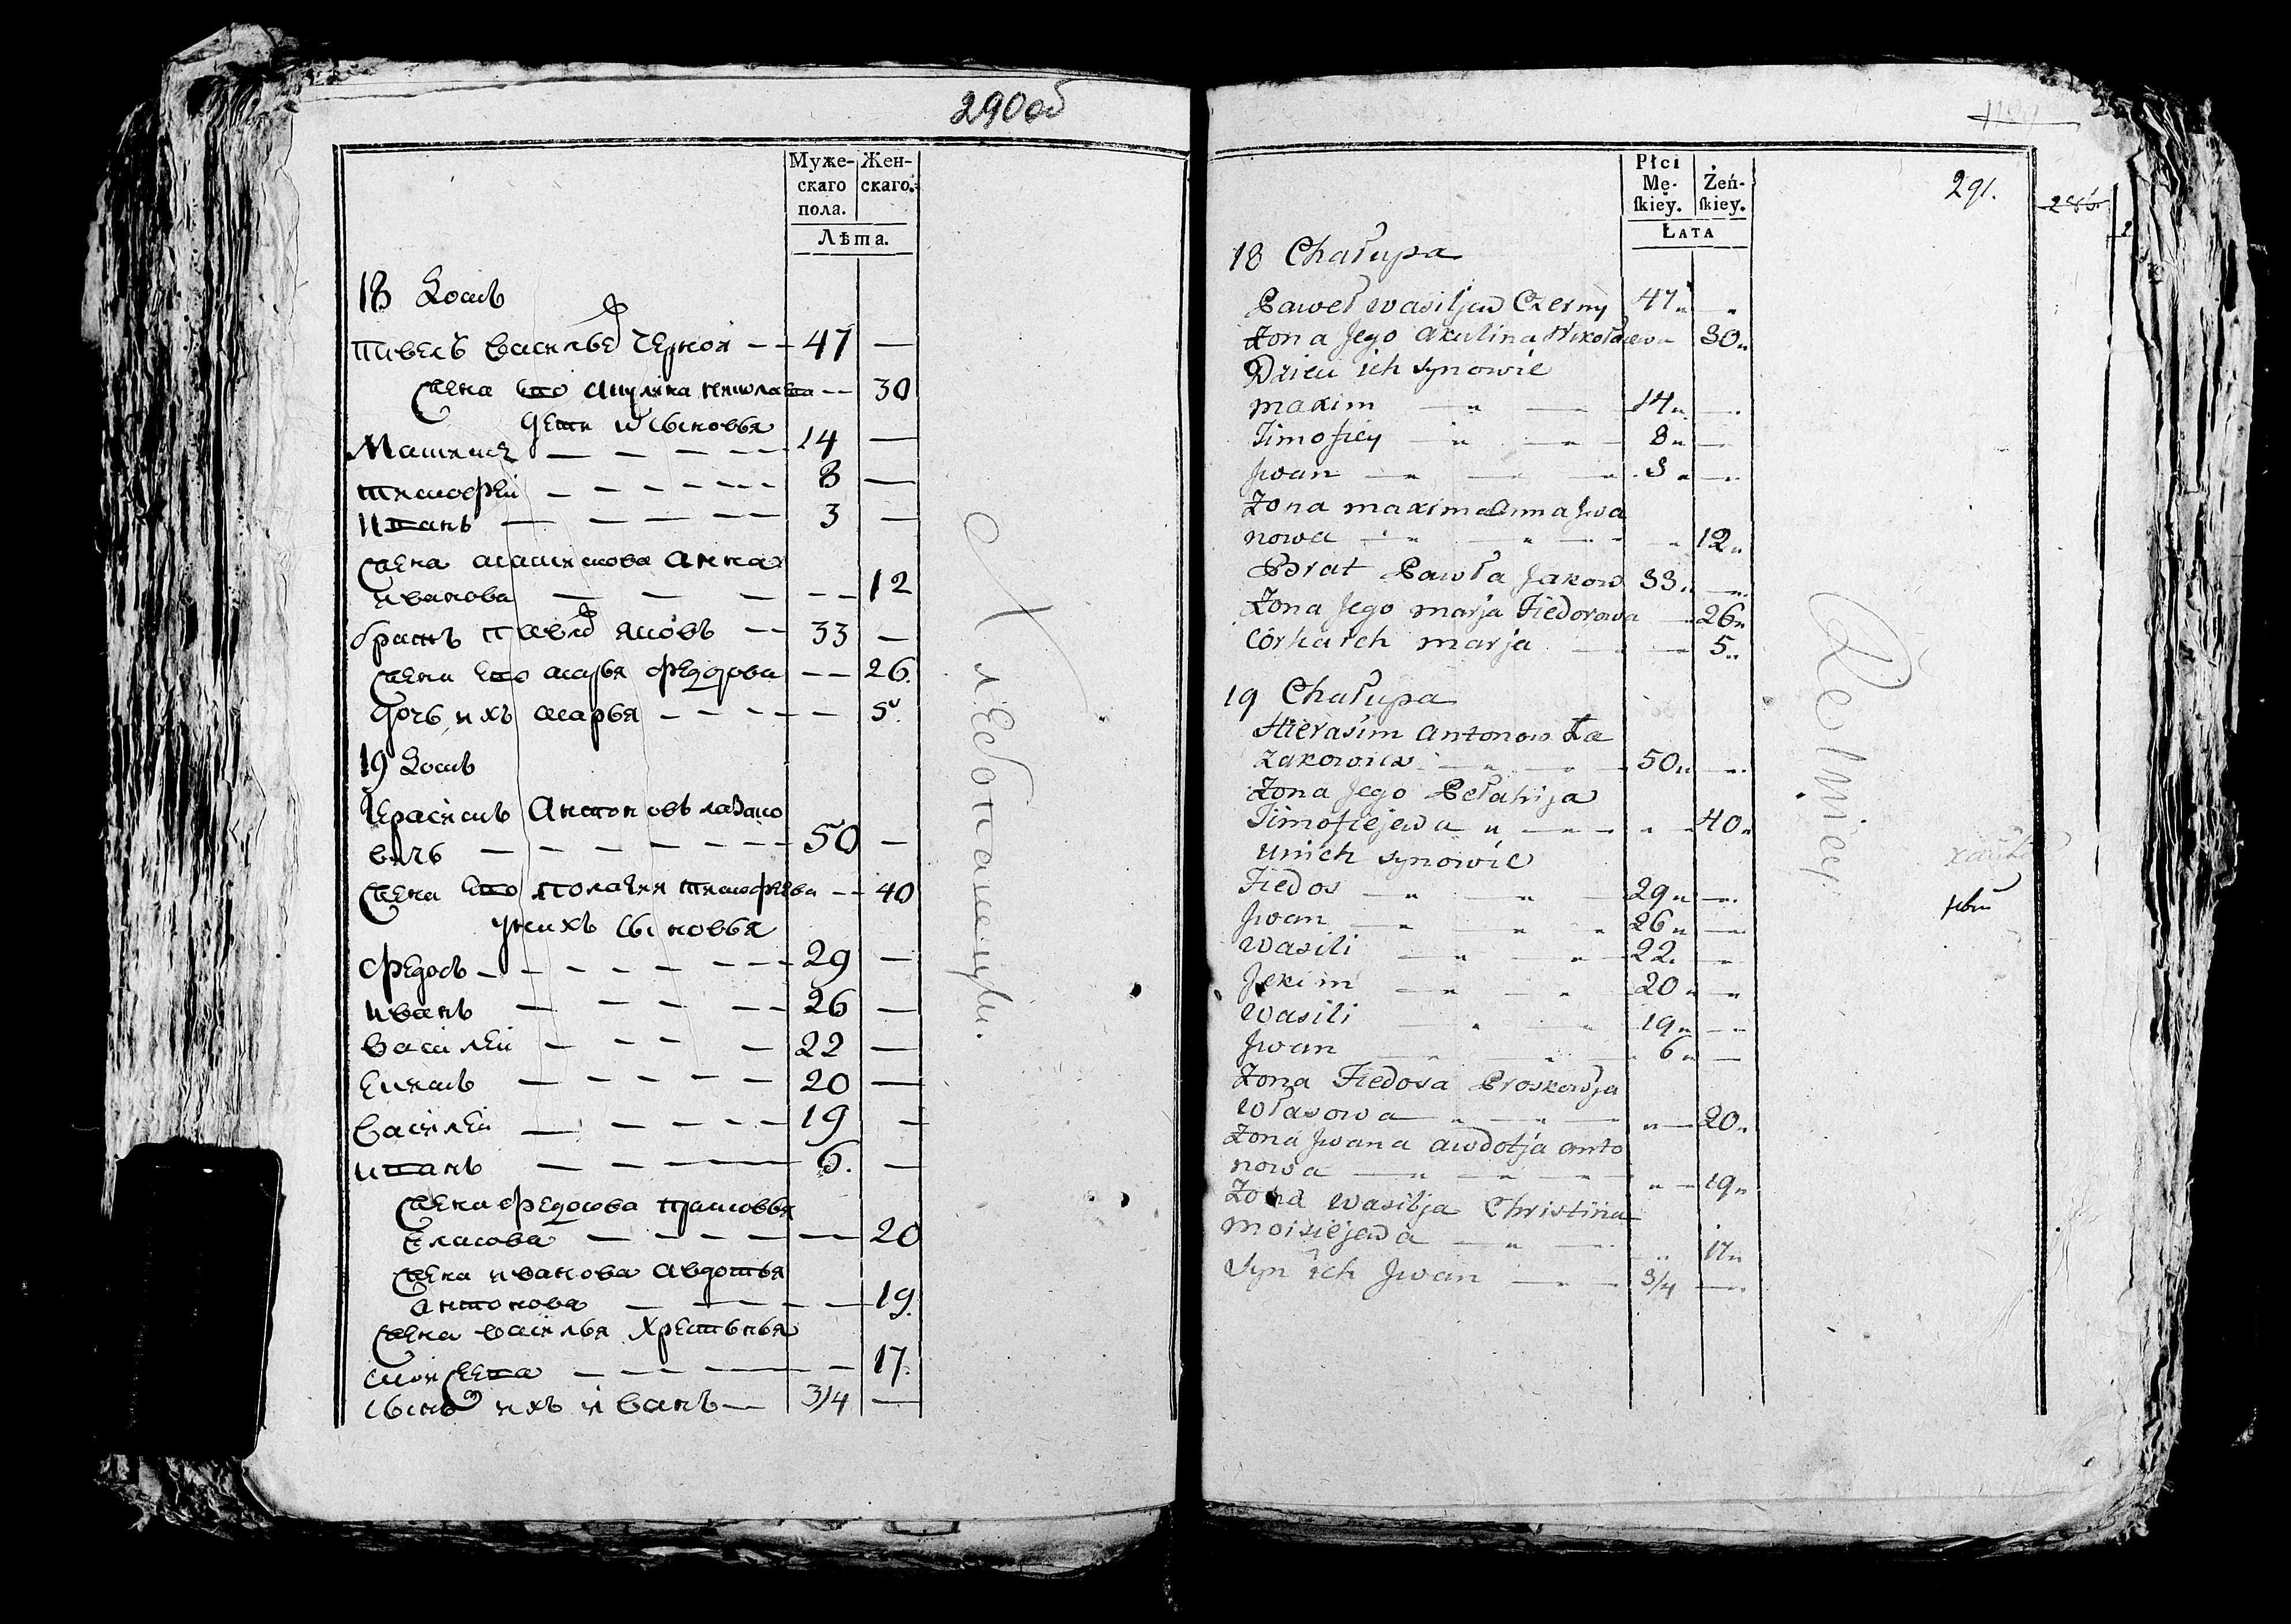 290 об
Муже-
скаго
пола.
Жен-
скаго.
Лѣта.
18 Домъ
павелъ василье͡в черной — — 47 —
жена ево акулина николаева — — 30
дети их сыновья
Максимъ — — — — — 14 —
тимофеи — — — — — — 8 —
иванъ — — — — — 3 —
жена максимова анна
иванова — — — — — 12
братъ павла яковъ — — 33 —
жена ево марья федорова — — 26.
дочь ихъ марья — — — — — 5.
19 Домъ
герасимъ антоновъ лазако
вичъ — — — — — — — 50 —
жена ево полагия тимофеева — — 40
у нихъ сыновья
федосъ — — — — — — — 29 —
иванъ — — — — — 26 —
василеи — — — — 22 —
екимъ — — — — — 20 —
василеи — — — — — 19 —
иванъ — — — — 6. —
жена федосова прасковья
власова — — — — — — 20
жена иванова авдотья
антонова — — — — — 19.
жена василья христинья
моисеева — — — — — 17.
сынъ ихъ иванъ — 3/4 —
Хлебопашецъ.
291.
Płci
Mę-
ſkiey.
Żeń-
ſkiey.
ŁATA
18 Chałupa
Paweł Wasiljew Czerny 47 „ — „
Żona Jego Akulina Nikołaiewa 30 „
Dzieci ich synowie
Maxim — „ — 14 „ —
Timofiey — „ — „ — 8 „ —
Jwan — „ — — „ 3 „ —
Żona maxima Anna Jwa
nowa — „ — „ — — „ 12 „
Brat Pawła Jakow 33 „ —
Żona Jego marja Fiedorowa — 26 „
Córka ich marja — — 5 „
19 Chałupa
Hierasim Antonow Ła
zakowicz — „ — — 50 „ —
Żona Jego Pełahija
Timofiejewa „ — „ — „ — 40 „
u nich synowie
Fiedos — „ — „ — 29 „ —
Jwan — „ — „ — „ 26 „ —
Wasili — „ — „ — 22 „ —
Jekim — „ — „ 20 „ —
Wasili — „ — 19 „ —
Jwan — „ — „ — 6 „ —
Żona Fiedosa Proskowja
Własowa — „ — „ — „ — 20 „
Żona Jwana Awdotja Anto
nowa — „ — „ — „ — 19 „
Żona Wasilja Christina
Moisiejewa — „ — „ 17 „
Syn ich Jwan — „ — 3/4 —
Rolniey